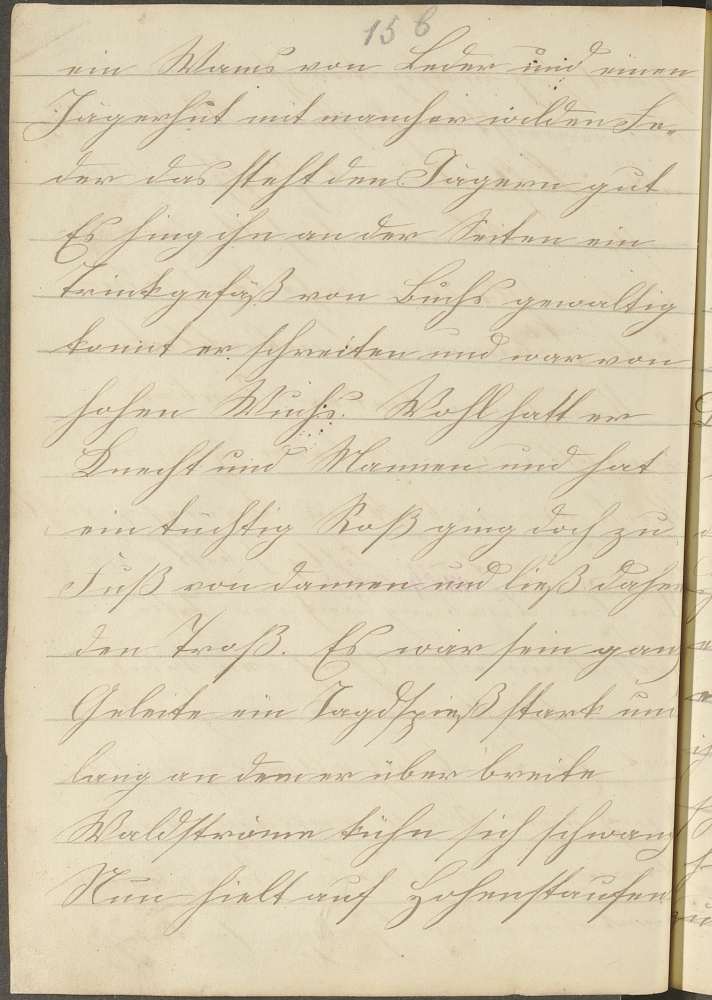 15 6
ein Wams von Leder und einen
Jägerhut mit mancher wilden Fe-
der das steht den Jägern gut
Es hing ihn an der Seiten ein
Trinkgefäß von Buchs gewaltig
konnt er schreiten und war von
hohen Wuchs. Wohl hatt er
Knecht und Mannen und hat
ein tüchtig Roß ging doch zu
Fuß von dannen und ließ daheim
den Troß. Es war sein ganz
Geleite ein Jagdspieß stark und
lang an dem er über breite
Waldströme kühn sich schwang
Nun hielt auf Hohenstaufen